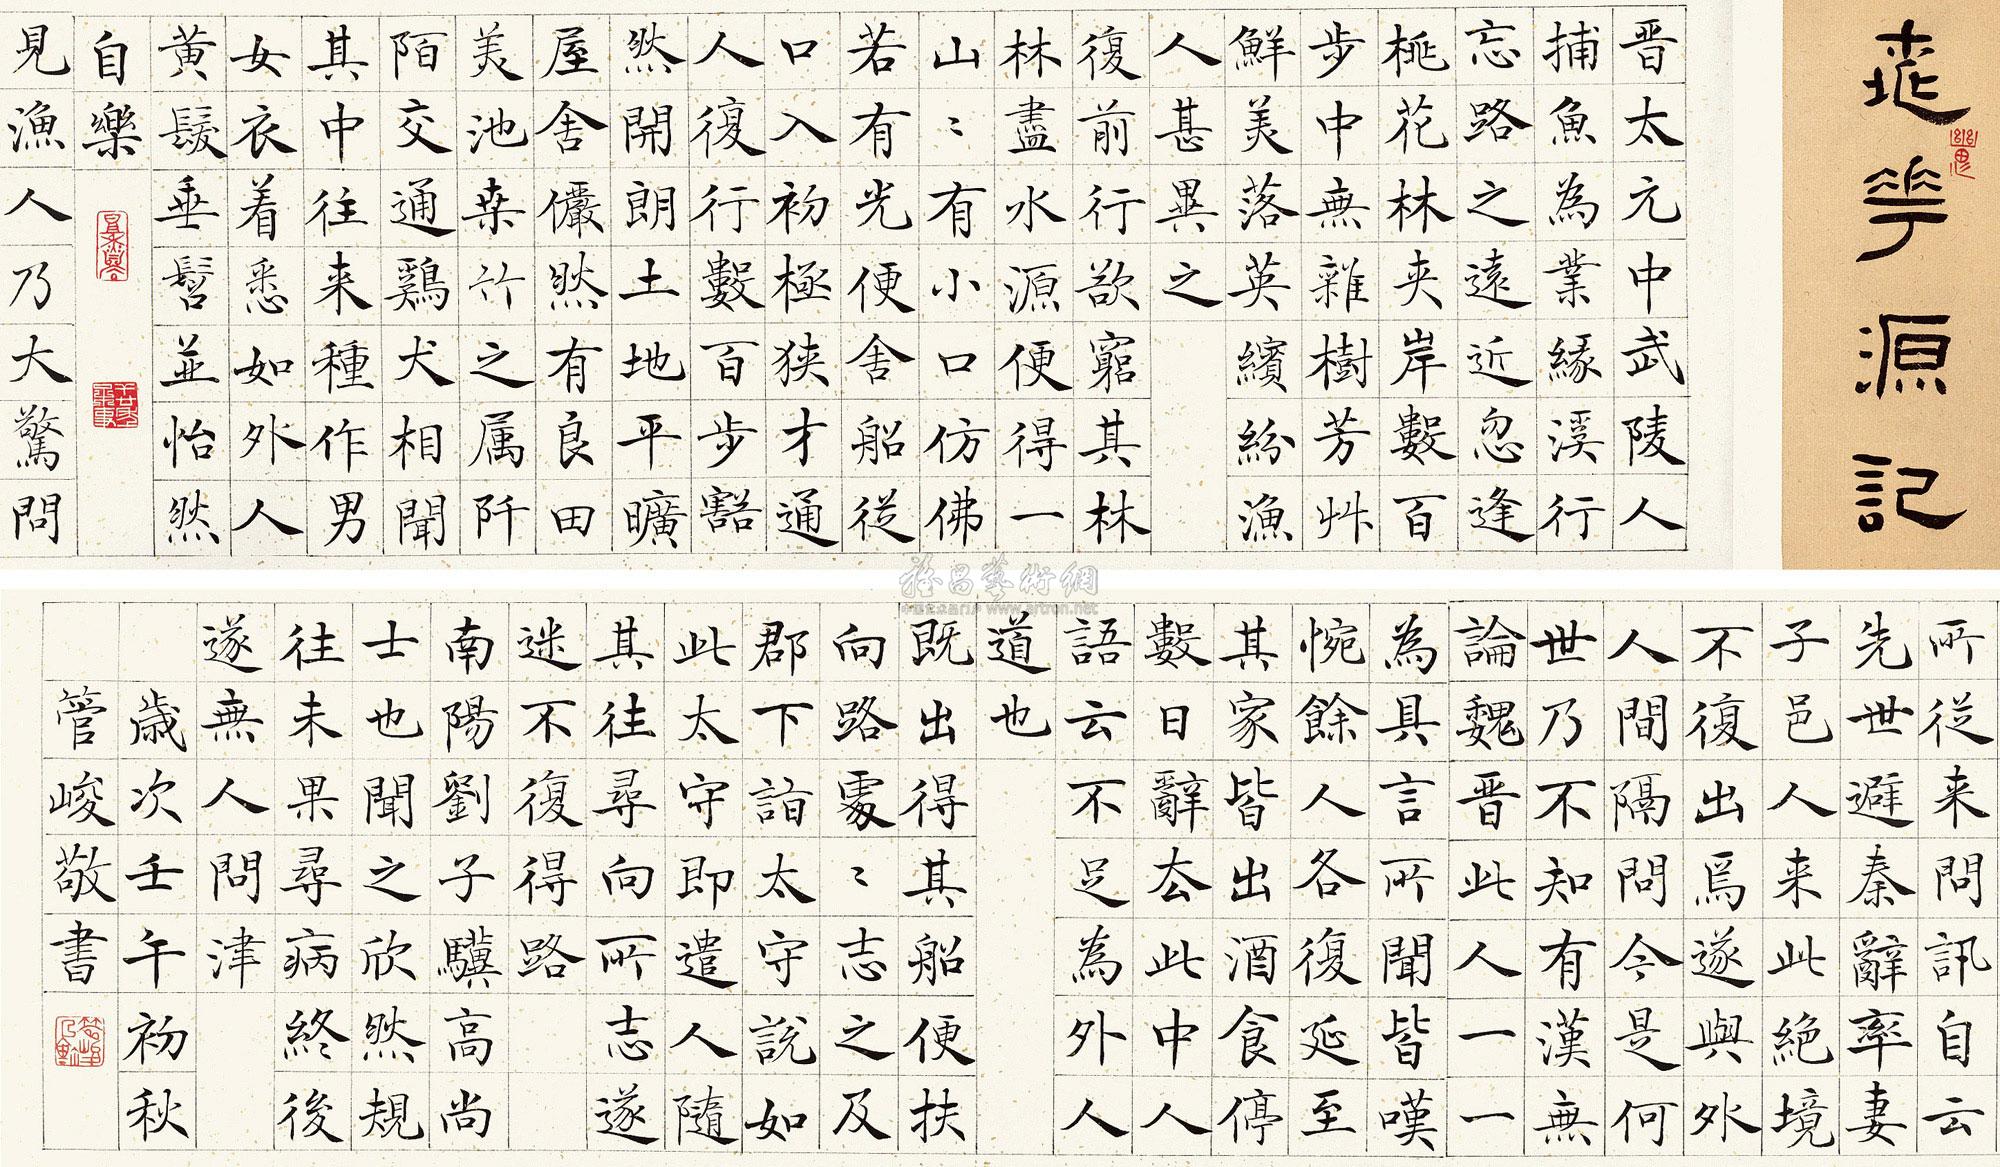 桃華源記
晉太元中武陵人
捕魚為業緣溪行
忘路之遠近忽逢
桃花林夾岸數百
步中無雜樹芳艸
鮮美落英繽紛漁
人甚異之
復前行欲窮其林
林盡水源便得一
山〻有小口仿佛
若有光便舍船從
口入初極狹才通
人復行數百步豁
然開朗土地平曠
屋舍儼然有良田
美池桒竹之属阡
陌交通鷄犬相聞
其中往来種作男
女衣着悉如外人
黄髮垂髫並怡然
自樂
見漁人乃大驚問
所従来問訊自云
先世避秦辭率妻
子邑人来此絶境
不復出焉遂與外
人間隔問今是何
世乃不知有漢無
論魏晋此人一一
為具言所聞皆嘆
惋餘人各復延至
其家皆出酒食停
數日辭去此中人
語云不足為外人
道也
既出得其船便扶
向路處〻志之及
郡下詣太守說如
此太守即遣人隨
其往尋向所志遂
迷不復得路
南陽劉子驥高尚
士也聞之欣然規
往未果尋病終後
遂無人問津
歲次壬午初秋
管峻敬書
雅昌藝術網
中国艺术品门户 www.artron.net